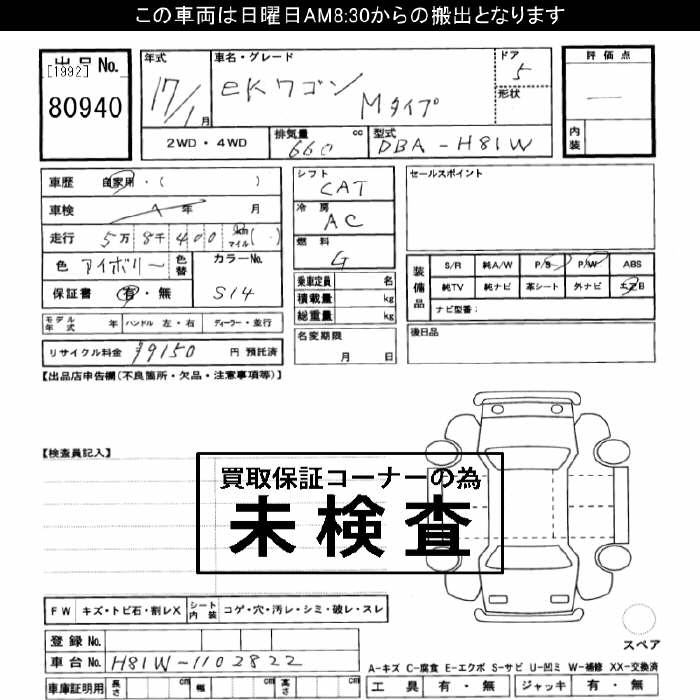 この車両は日曜日AM8:30からの搬出となります
出品No.
[1992]
80940
年式
17/1月
車名・グレード
eKワゴン
Mタイプ
ドア
5
形状
評価点
—
内装
2WD・4WD
排気量 660 cc
型式 DBA-H81W
車歴 自家用・( )
車検 年 月
走行 5万8千400 km マイル( )
色 アイボリー 色替
カラーNo. S14
保証書 有・無
モデル年式 年 ハンドル 左・右 ディーラー・並行
リサイクル料金 ¥9150 円 預託済
シフト CAT
冷房 AC
燃料 G
乗車定員 名
積載量 kg
総重量 kg
名変期限
月 日
セールスポイント
装備品
S/R 純A/W P/S P/W ABS
純TV 純ナビ 革シート 外ナビ エアB
ナビ型番:
後日品
【出品店申告欄(不良箇所・欠品・注意事項等)】
【検査員記入】
買取保証コーナーの為
未検査
FW キズ・トビ石・割レX シート内装 コゲ・穴・汚レ・シミ・破レ・スレ
登録No.
車台No. H81W-1102822
車庫証明用 長さ cm 幅 cm 高さ cm
スペア
A-キズ C-腐食 E-エクボ S-サビ U-凹ミ W-補修 XX-交換済
工具 有・無 ジャッキ 有・無